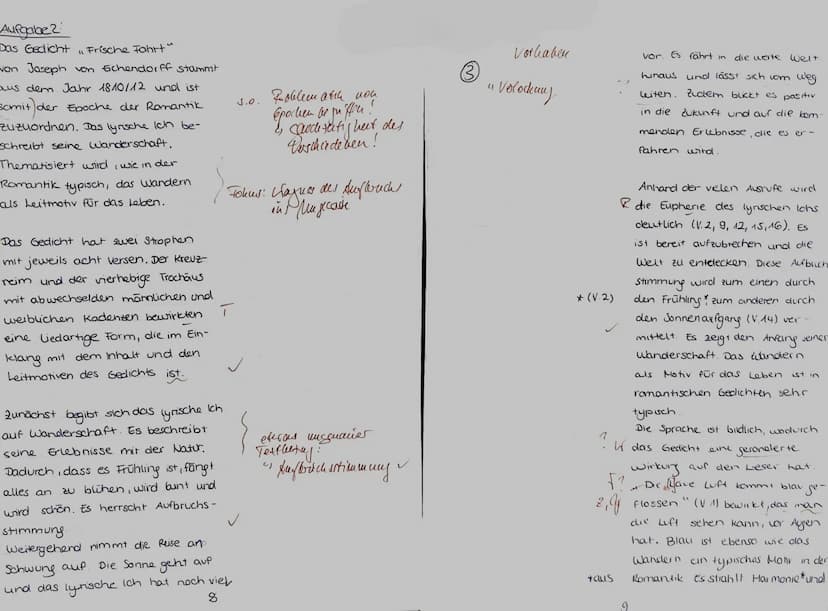 Aufgabe 2:
Das Gedicht „Frische Fahrt"
von Joseph von Eichendorff stammt
aus dem Jahr 1810/12 und ist
somit der Epoche der Romantik
zuzuordnen. Das lyrische Ich be-
schreibt seine Wanderschaft.
Thematisiert wird, wie in der
Romantik typisch, das Wandern
als Leitmotiv für das Leben.
s.o. Problematik von
Epochenbegriffen!
des
Verschiedenen!
Fokus: des Aufbruchs
Das Gedicht hat zwei Strophen
mit jeweils acht Versen. Der Kreuz-
reim und der vierhebige Trochäus
mit abwechselden männlichen und
weiblichen Kadenzen bewirkten T
eine liedartige Form, die im Ein-
klang mit dem Inhalt und den
Leitmotiven des Gedichts ist.
Zunächst begibt sich das lyrische Ich
auf Wanderschaft. Es beschreibt
seine Erlebnisse mit der Natur.
Dadurch, dass es Frühling ist, fängt
alles an zu blühen, wird bunt und
wird schön. Es herrscht Aufbruchs-
stimmung
etwas ungenauer
Textbezug:
Aufbruchsstimmung
Weitergehend nimmt die Reise an
Schwung auf. Die Sonne geht auf
und das lyrische Ich hat noch viel
8
Vorhaben
3
Verlockung
vor. Es fährt in die weite Welt
hinaus und lässt sich vom Weg
leiten. Zudem blickt es positiv
in die Zukunft und auf die kom-
menden Erlebnisse, die es er-
fahren wird.
Anhand der vielen Ausrufe wird
R die Eupherie des lyrischen Ichs
deutlich (V. 2, 9, 12, 15, 16). Es
ist bereit aufzubrechen und die
Welt zu entdecken. Diese Aufbruch
stimmung wird zum einen durch
*(V. 2) den Frühling*, zum anderen durch
den Sonnenaufgang (V. 14) ver-
mittelt. Es zeigt den Anfang seiner
Wanderschaft. Das Wandern
als Motiv für das Leben ist in
romantischen Gedichten sehr
typisch.
Die Sprache ist bildlich, wodurch
das Gedicht eine
Wirkung auf den Leser hat.
Luft kommt blau ge-
flossen" (V. 1) bewirkt, das man
die Luft sehen kann, vor Augen
hat. Blau ist ebenso wie das
Wandern ein typisches Motiv in der
*aus Romantik. Es strahlt Harmonie* und
9